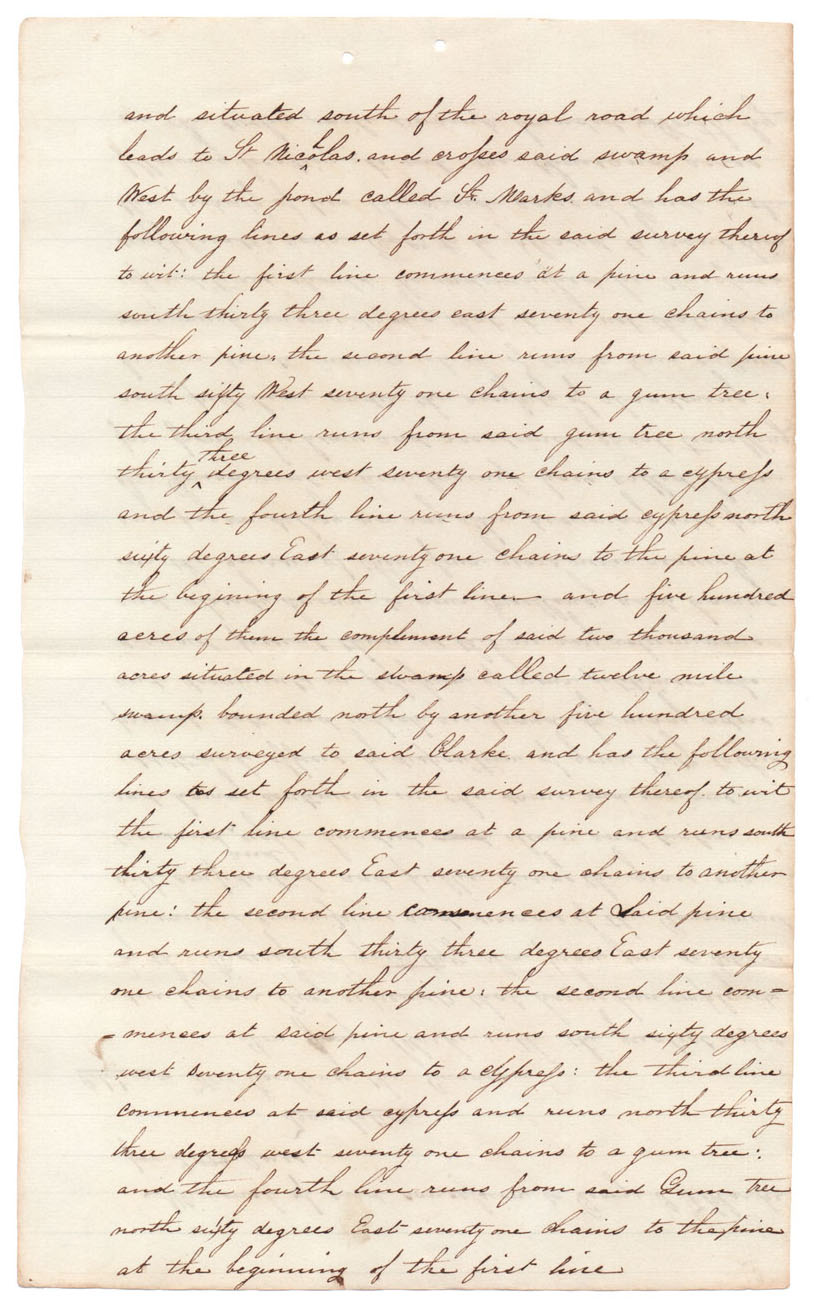 and situated south of the royal road which
leads to St Nicholas. and crosses said swamp and
West by the pond called St. Marks. and has the
following lines as set forth in the said survey thereof
to wit: the first line commences at a pine and runs
south thirty three degrees east seventy one chains to
another pine: the second line runs from said pine
south sixty West seventy one chains to a gum tree:
the third line runs from said gum tree north
thirty three degrees west seventy one chains to a cypress
and the fourth line runs from said cypress north
sixty degrees East seventy one chains to the pine at
the begining of the first line— and five hundred
acres of them the compliment of said two thousand
acres situated in the swamp called twelve mile
swamp. bounded north by another five hundred
acres surveyed to said Clarke. and has the following
lines as set forth in the said survey thereof. to wit
the first line commences at a pine and runs south
thirty three degrees East seventy one chains to another
pine: the second line commences at said pine
and runs south thirty three degrees East seventy
one chains to another pine: the second line com=
=mences at said pine and runs south sixty degrees
west seventy one chains to a cypress: the third line
commences at said cypress and runs north thirty
three degrees west seventy one chains to a gum tree:
and the fourth line runs from said Gum tree
north sixty degrees East seventy one chains to the pine
at the beginning of the first line